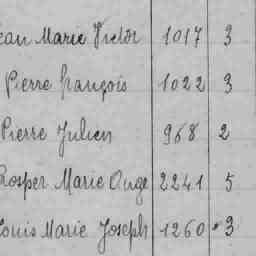 Jean Marie Victor 1017 3
Pierre françois 1022 3
Pierre Julien 968 2
Prosper Marie Ange 2241 5
Louis Marie Joseph 1260 3